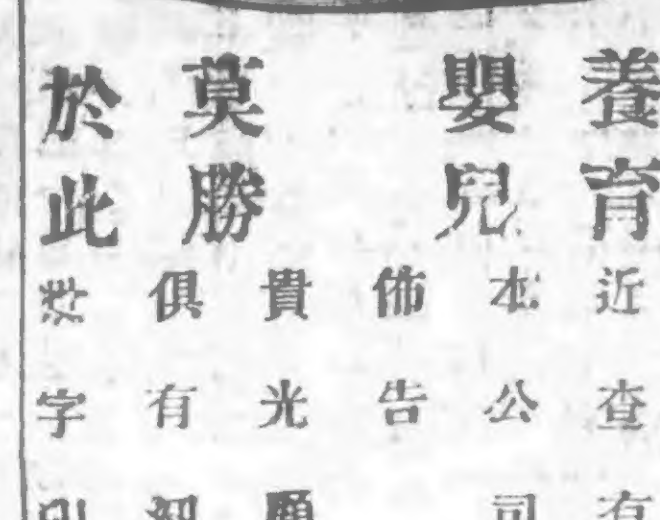 養育
嬰兒
莫勝
於此
近查有
本公司
佈告
貴光顧
俱有
字印